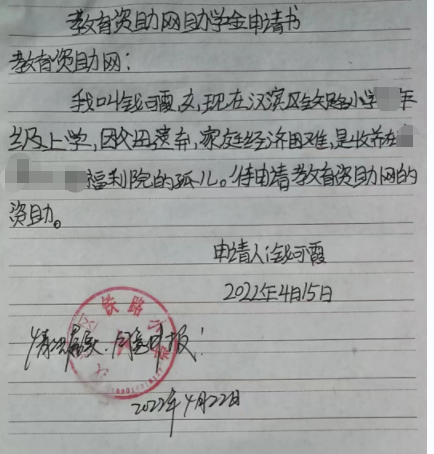 教育资助网助学金申请书
教育资助网：
我叫钱可霞，女，现在汉滨区铁路小学年
级上学，因父母遗弃，家庭经济困难，是收养在
福利院的孤儿。特申请教育资助网的
资助。
申请人：钱可霞
2022年4月15日
铁路小学
情况属实，同意申报！
2022年4月22日